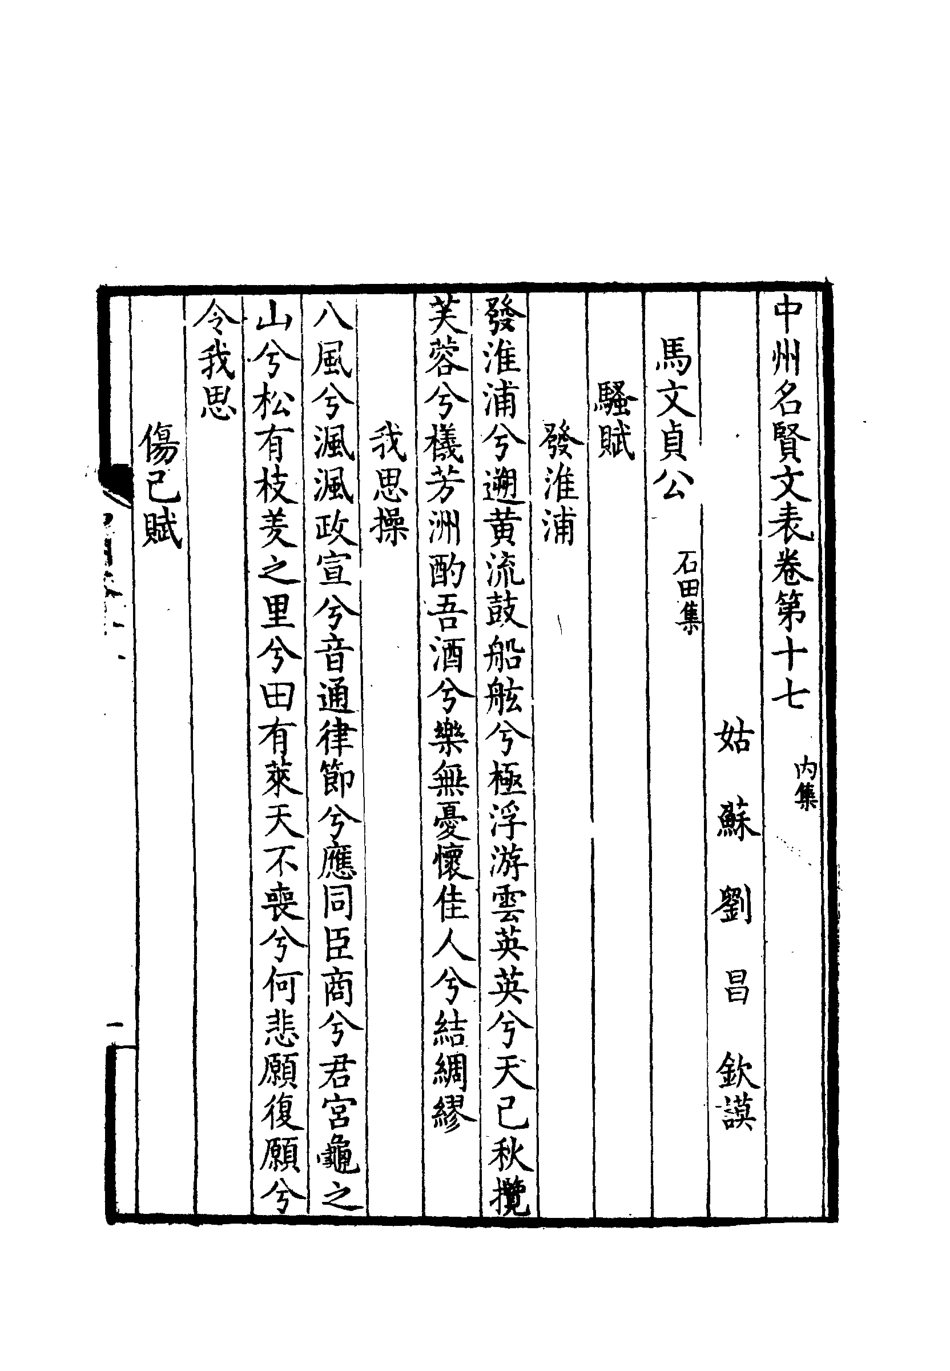 中州名賢文表卷第十七　内集
姑蘇劉昌欽謨
馬文貞公　石田集
騷賦
發淮浦
發淮浦兮遡黄流鼓船舷兮極浮游雲英英兮天已秋攬
芙蓉兮檥芳洲酌吾酒兮樂無憂懷佳人兮結綢繆
我思操
八風兮渢渢政宣兮音通律節兮應同臣商兮君宮龜之
山兮松有枝羑之里兮田有萊天不喪兮何悲願復願兮
令我思
傷已賦
一